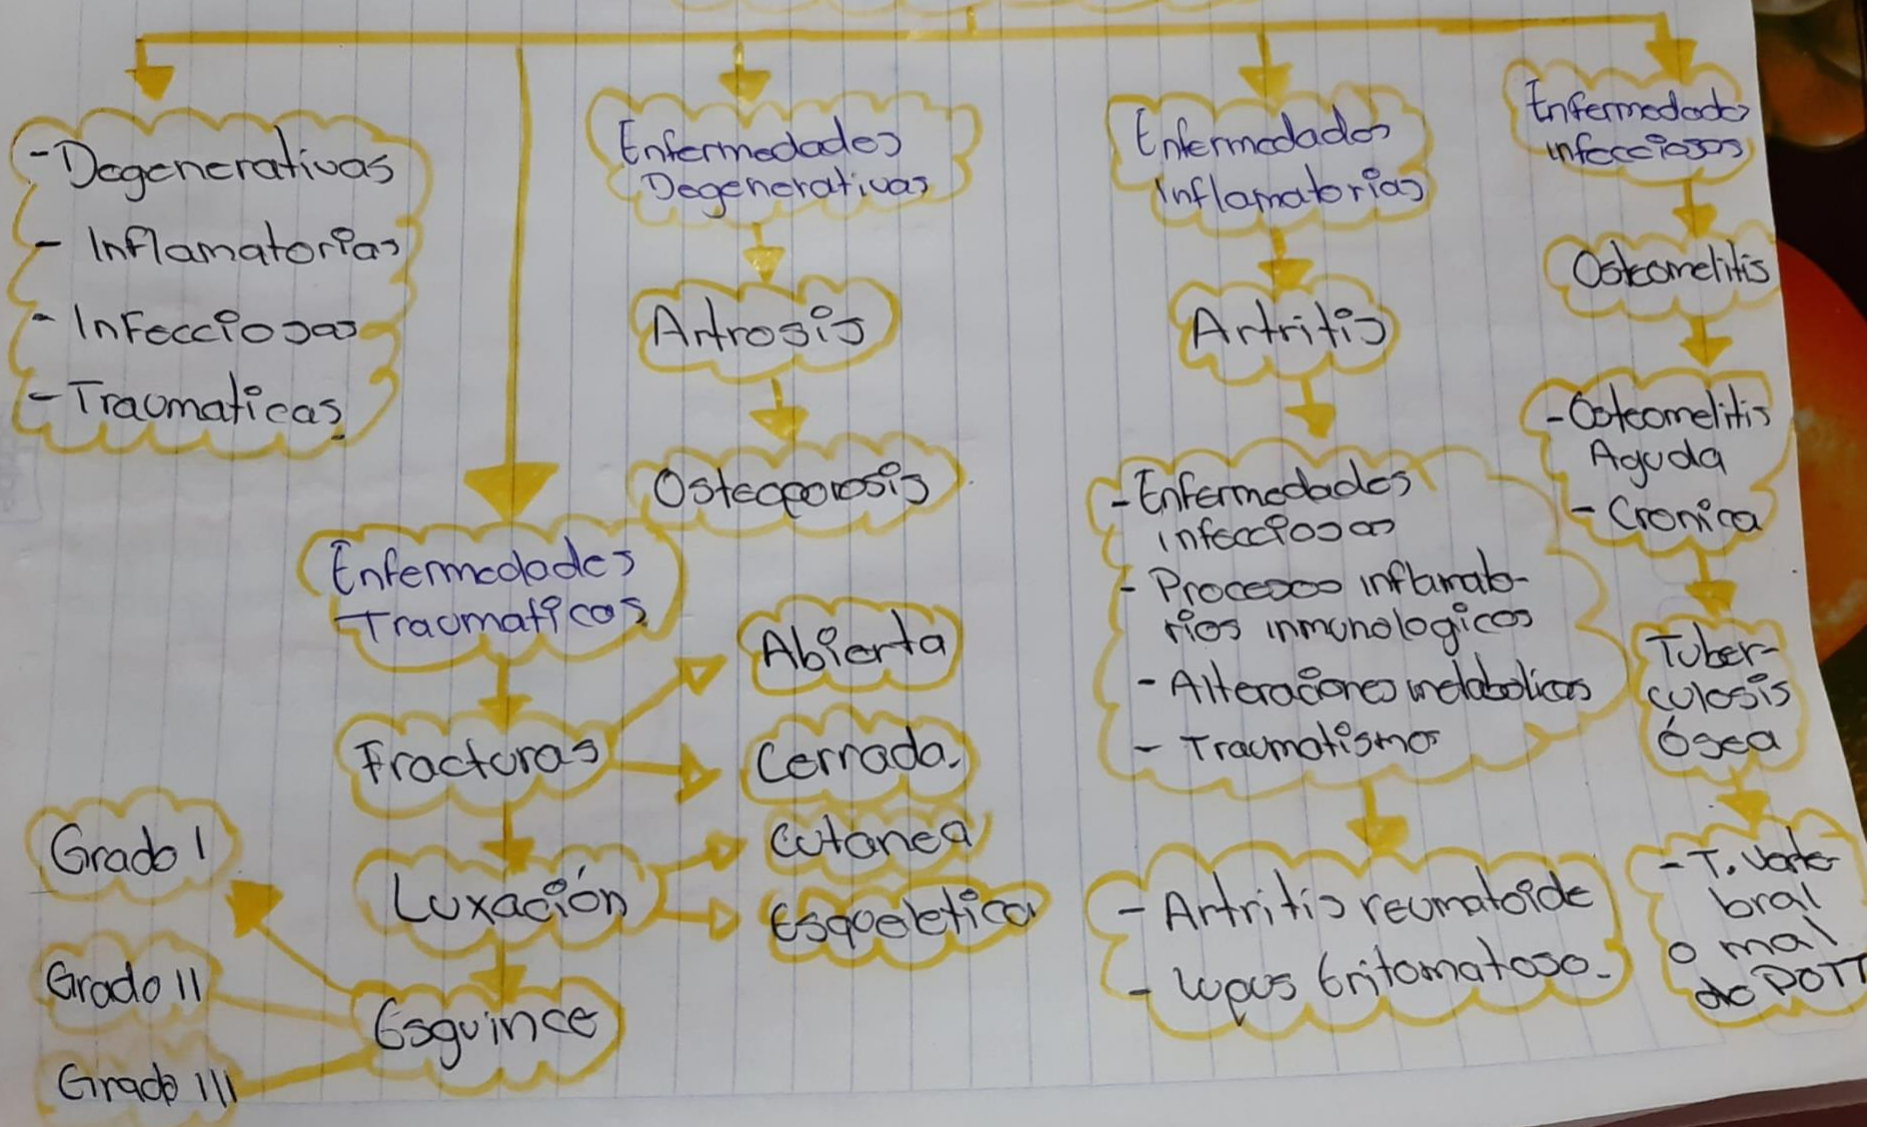 -Degenerativas
- Inflamatorias
- Infecciosas
- Traumaticas.
Enfermedades
Traumaticas.
Fracturas
Abierta
Cerrada.
Luxación
Cutanea
Esqueletica
Esguince
Grado I
Grado II
Grado III
Enfermedades
Degenerativas
Artrosis
Osteoporosis
Enfermedades
Inflamatorias
Artritis
- Enfermedades
infecciosas
- Procesos inflamato-
rios inmunologicos
- Alteraciones metabolicas
- Traumatismos
- Artritis reumatoide
- Lupus Eritomatoso.
Enfermedades
infecciosas
Osteomelitis
- Osteomelitis
Aguda
- Cronica
Tuber-
culosis
ósea
- T. Verte-
bral
o mal
de POTT